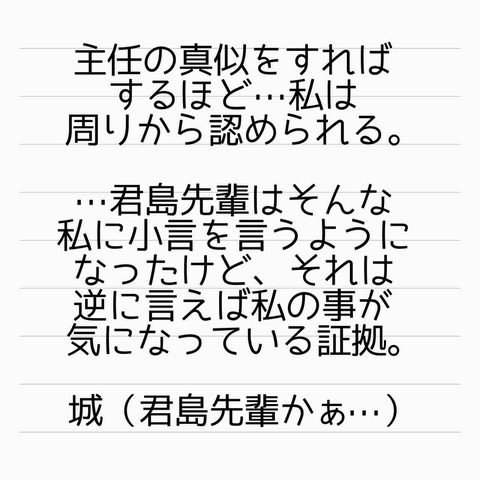 主任の真似をすれば
するほど…私は
周りから認められる。
…君島先輩はそんな
私に小言を言うように
なったけど、それは
逆に言えば私の事が
気になっている証拠。
城（君島先輩かぁ…）